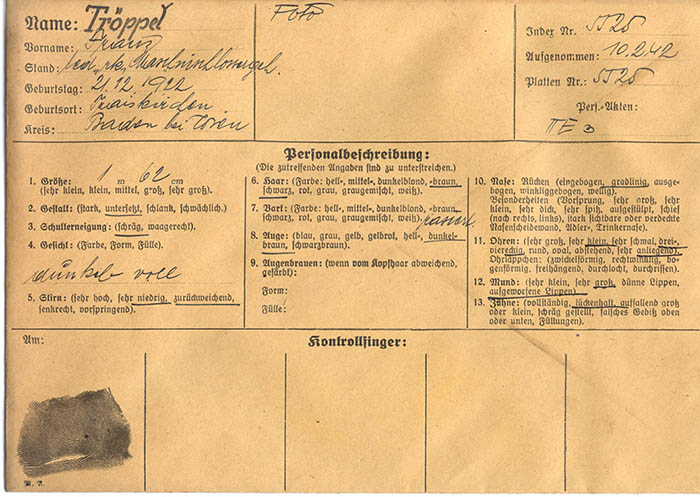 Name: Tröppel
Vorname: Franz
Stand: led. rk.
Geburtstag: 21.12.1922
Geburtsort: Traiskirchen
Kreis: Baden bei Wien
Foto
Index Nr. 5525
Aufgenommen: 10.2.42
Platten Nr.: 5525
Pers.-Akten:
II E 3
Personalbeschreibung:
(Die zutreffenden Angaben sind zu unterstreichen).
1. Größe: 1 m 62 cm
(sehr klein, klein, mittel, groß, sehr groß).
2. Gestalt: (stark, untersetzt, schlank, schwächlich).
3. Schulterneigung: (schräg, waagerecht).
4. Gesicht: (Farbe, Form, Fülle).
dunkel voll
5. Stirn: (sehr hoch, sehr niedrig, zurückweichend,
senkrecht, vorspringend).
6. Haar: (Farbe: hell-, mittel-, dunkelblond, -braun,
schwarz, rot, grau, graugemischt, weiß).
7. Bart: (Farbe: hell-, mittel-, dunkelblond, -braun,
schwarz, rot, grau, graugemischt, weiß). rasiert
8. Auge: (blau, grau, gelb, gelbrot, hell-, dunkel-
braun, schwarzbraun).
9. Augenbrauen: (wenn vom Kopfhaar abweichend,
gefärbt):
Form:
Fülle:
10. Nase: Rücken (eingebogen, gradlinig, ausge-
bogen, winkliggebogen, wellig).
Besonderheiten (Vorsprung, sehr groß, sehr
klein, sehr dick, sehr spitz, aufgestülpt, schief
(nach rechts, links), stark sichtbare oder verdeckte
Nasenscheidewand, Adler-, Trinkernase).
11. Ohren: (sehr groß, sehr klein, sehr schmal, drei-,
viereckig, rund, oval, abstehend, sehr anliegend).
Ohrläppchen: (zwickelförmig, rechtwinklig, bo-
genförmig, freihängend, durchlocht, durchrissen).
12. Mund: (sehr klein, sehr groß, dünne Lippen,
aufgeworfene Lippen).
13. Zähne: (vollständig, lückenhaft, auffallend groß
oder klein, schräg gestellt, falsches Gebiß oben
oder unten, Füllungen).
Am:
Kontrollfinger: